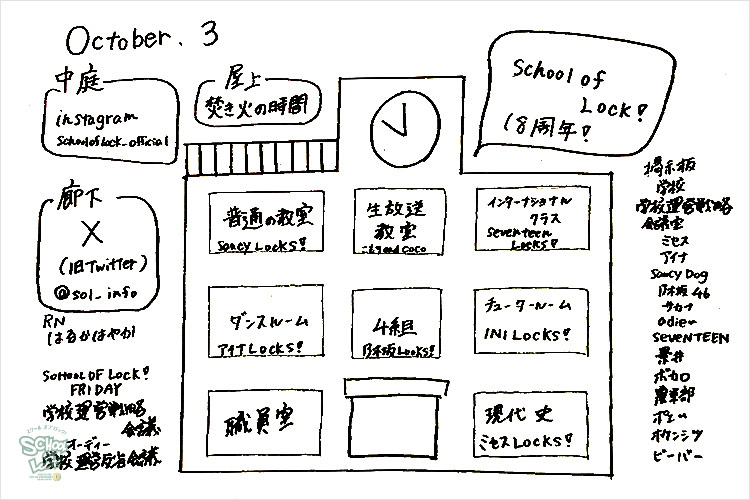 October. 3
中庭
instagram
Schooloflock_official
屋上
焚き火の時間
School of
Lock!
18周年!
廊下
X
(旧Twitter)
@sol_info
RN
はるかはやか
SCHOOL OF LOCK!
FRIDAY
学校運営戦略
会議
オーディー
学校運営反省会議
普通の教室
Saucy LOCKS!
生放送
教室
こもり and COCO
インターナショナル
クラス
Seventeen
LOCKS!
ダンスルーム
アイナ LOCKS!
4組
乃木坂LOCKS!
チュータールーム
INI LOCKS!
職員室
現代史
ミセスLOCKS!
掲示板
学校
学校運営戦略
会議室
ミセス
アイナ
Saucy Dog
乃木坂46
サカナ
odie
SEVENTEEN
黒井
ボカロ
農業部
ポエム
ボウンシツ
ビーバー